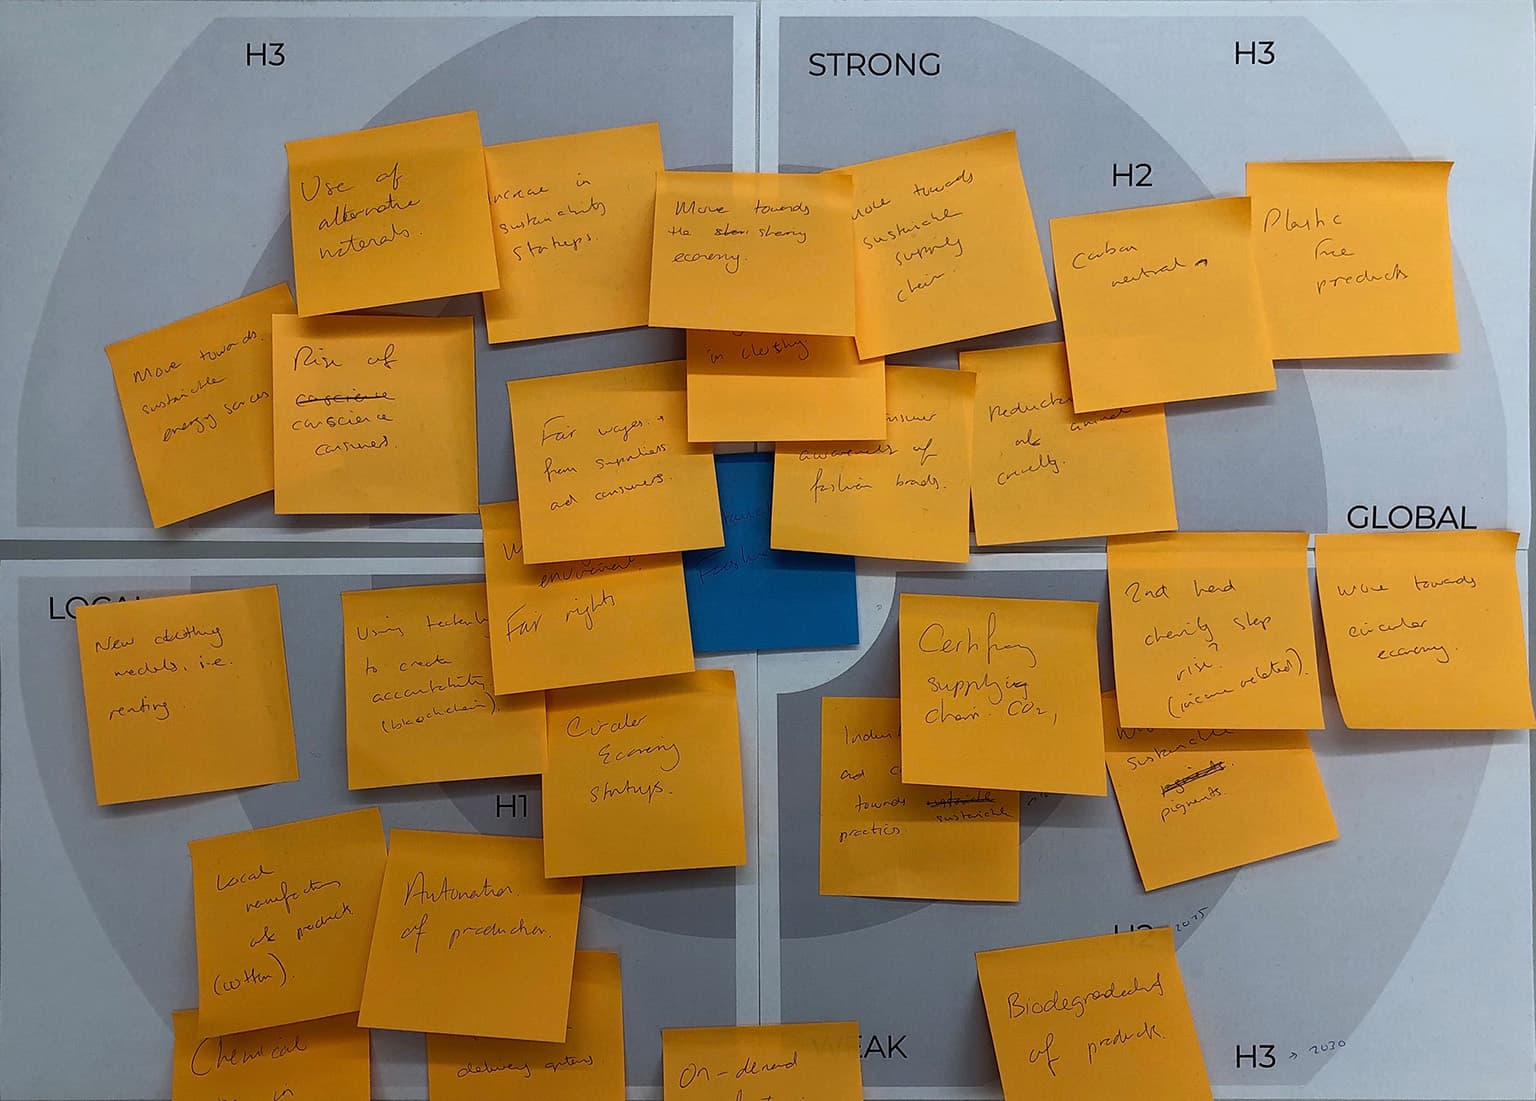 H3
STRONG
H3
H2
Use of
alternative
materials.
increase in
sustainability
startups.
Move towards
the sharing
economy.
move towards
sustainable
supply
chain.
Carbon
neutral
Plastic
free
products
Move towards
sustainable
energy sources
Rise of
conscience
conscience
consumers.
in clothing.
Fair wages
from suppliers
and consumers.
awareness of
fashion brands.
Reduction
of animal
cruelty.
GLOBAL
LOCAL
environment
Fair rights
New clothing
models, i.e.
renting
Using
to create
accountability
(blockchain).
Circular
Economy
startups.
Certifying
supplying
chain. CO2,
2nd hand
charity shop
rise?
(income related).
Move towards
circular
economy.
H1
and
towards sustainable
practices
sustainable
pigments
pigments.
Local
manufacturing
of products
(cotton).
Automation
of production.
H2 2025
Biodegradability
of products.
WEAK
H3 → 2030
Chemical
in
delivery options
On-demand